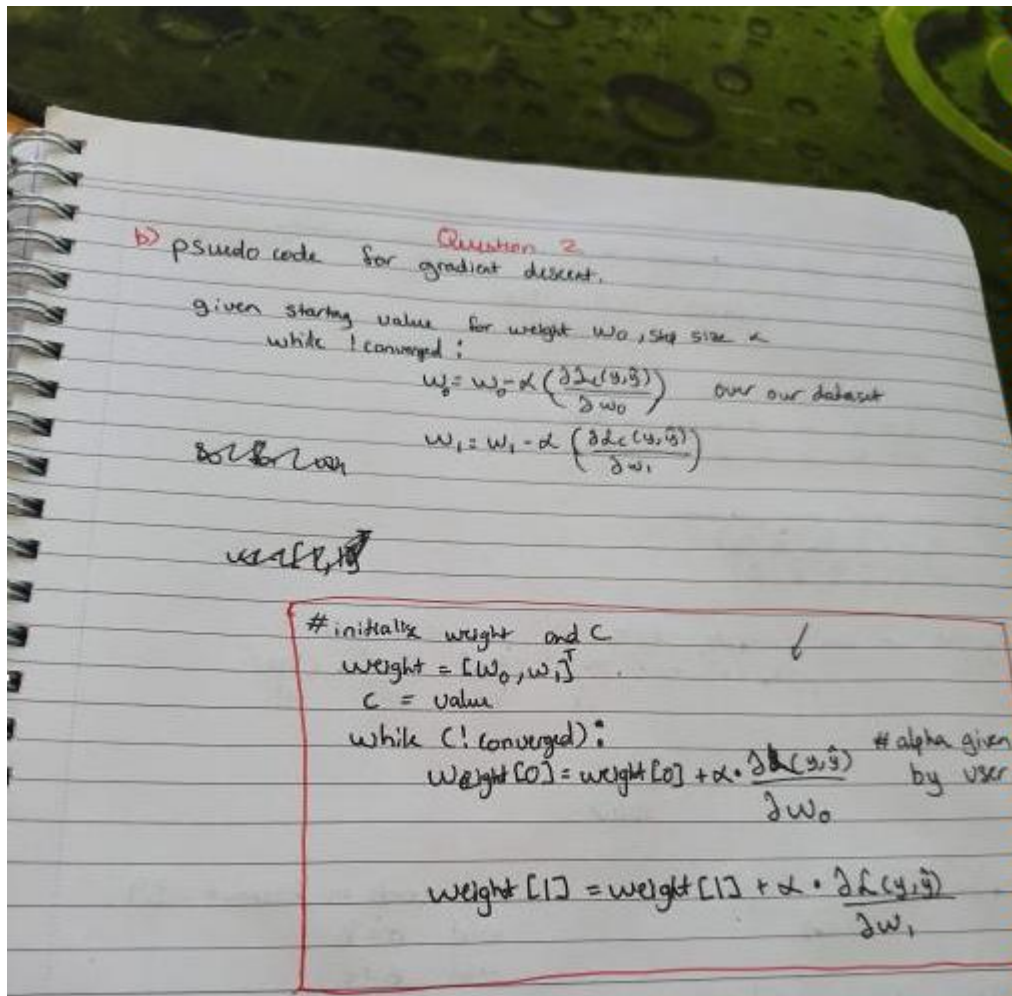 Question 2
b) psuedo code for gradient descent.
given starting value for weight w₀, step size α
while !converged :
w₀ = w₀ - α (∂L_c(y,ŷ) / ∂w₀) over our dataset
w₁ = w₁ - α (∂L_c(y,ŷ) / ∂w₁)
# initialize weight and C
weight = [w₀, w₁]ᵀ
C = value
while (! converged) :
weight[0] = weight[0] + α · ∂L(y,ŷ) / ∂w₀ # alpha given
by user
weight[1] = weight[1] + α · ∂L(y,ŷ) / ∂w₁